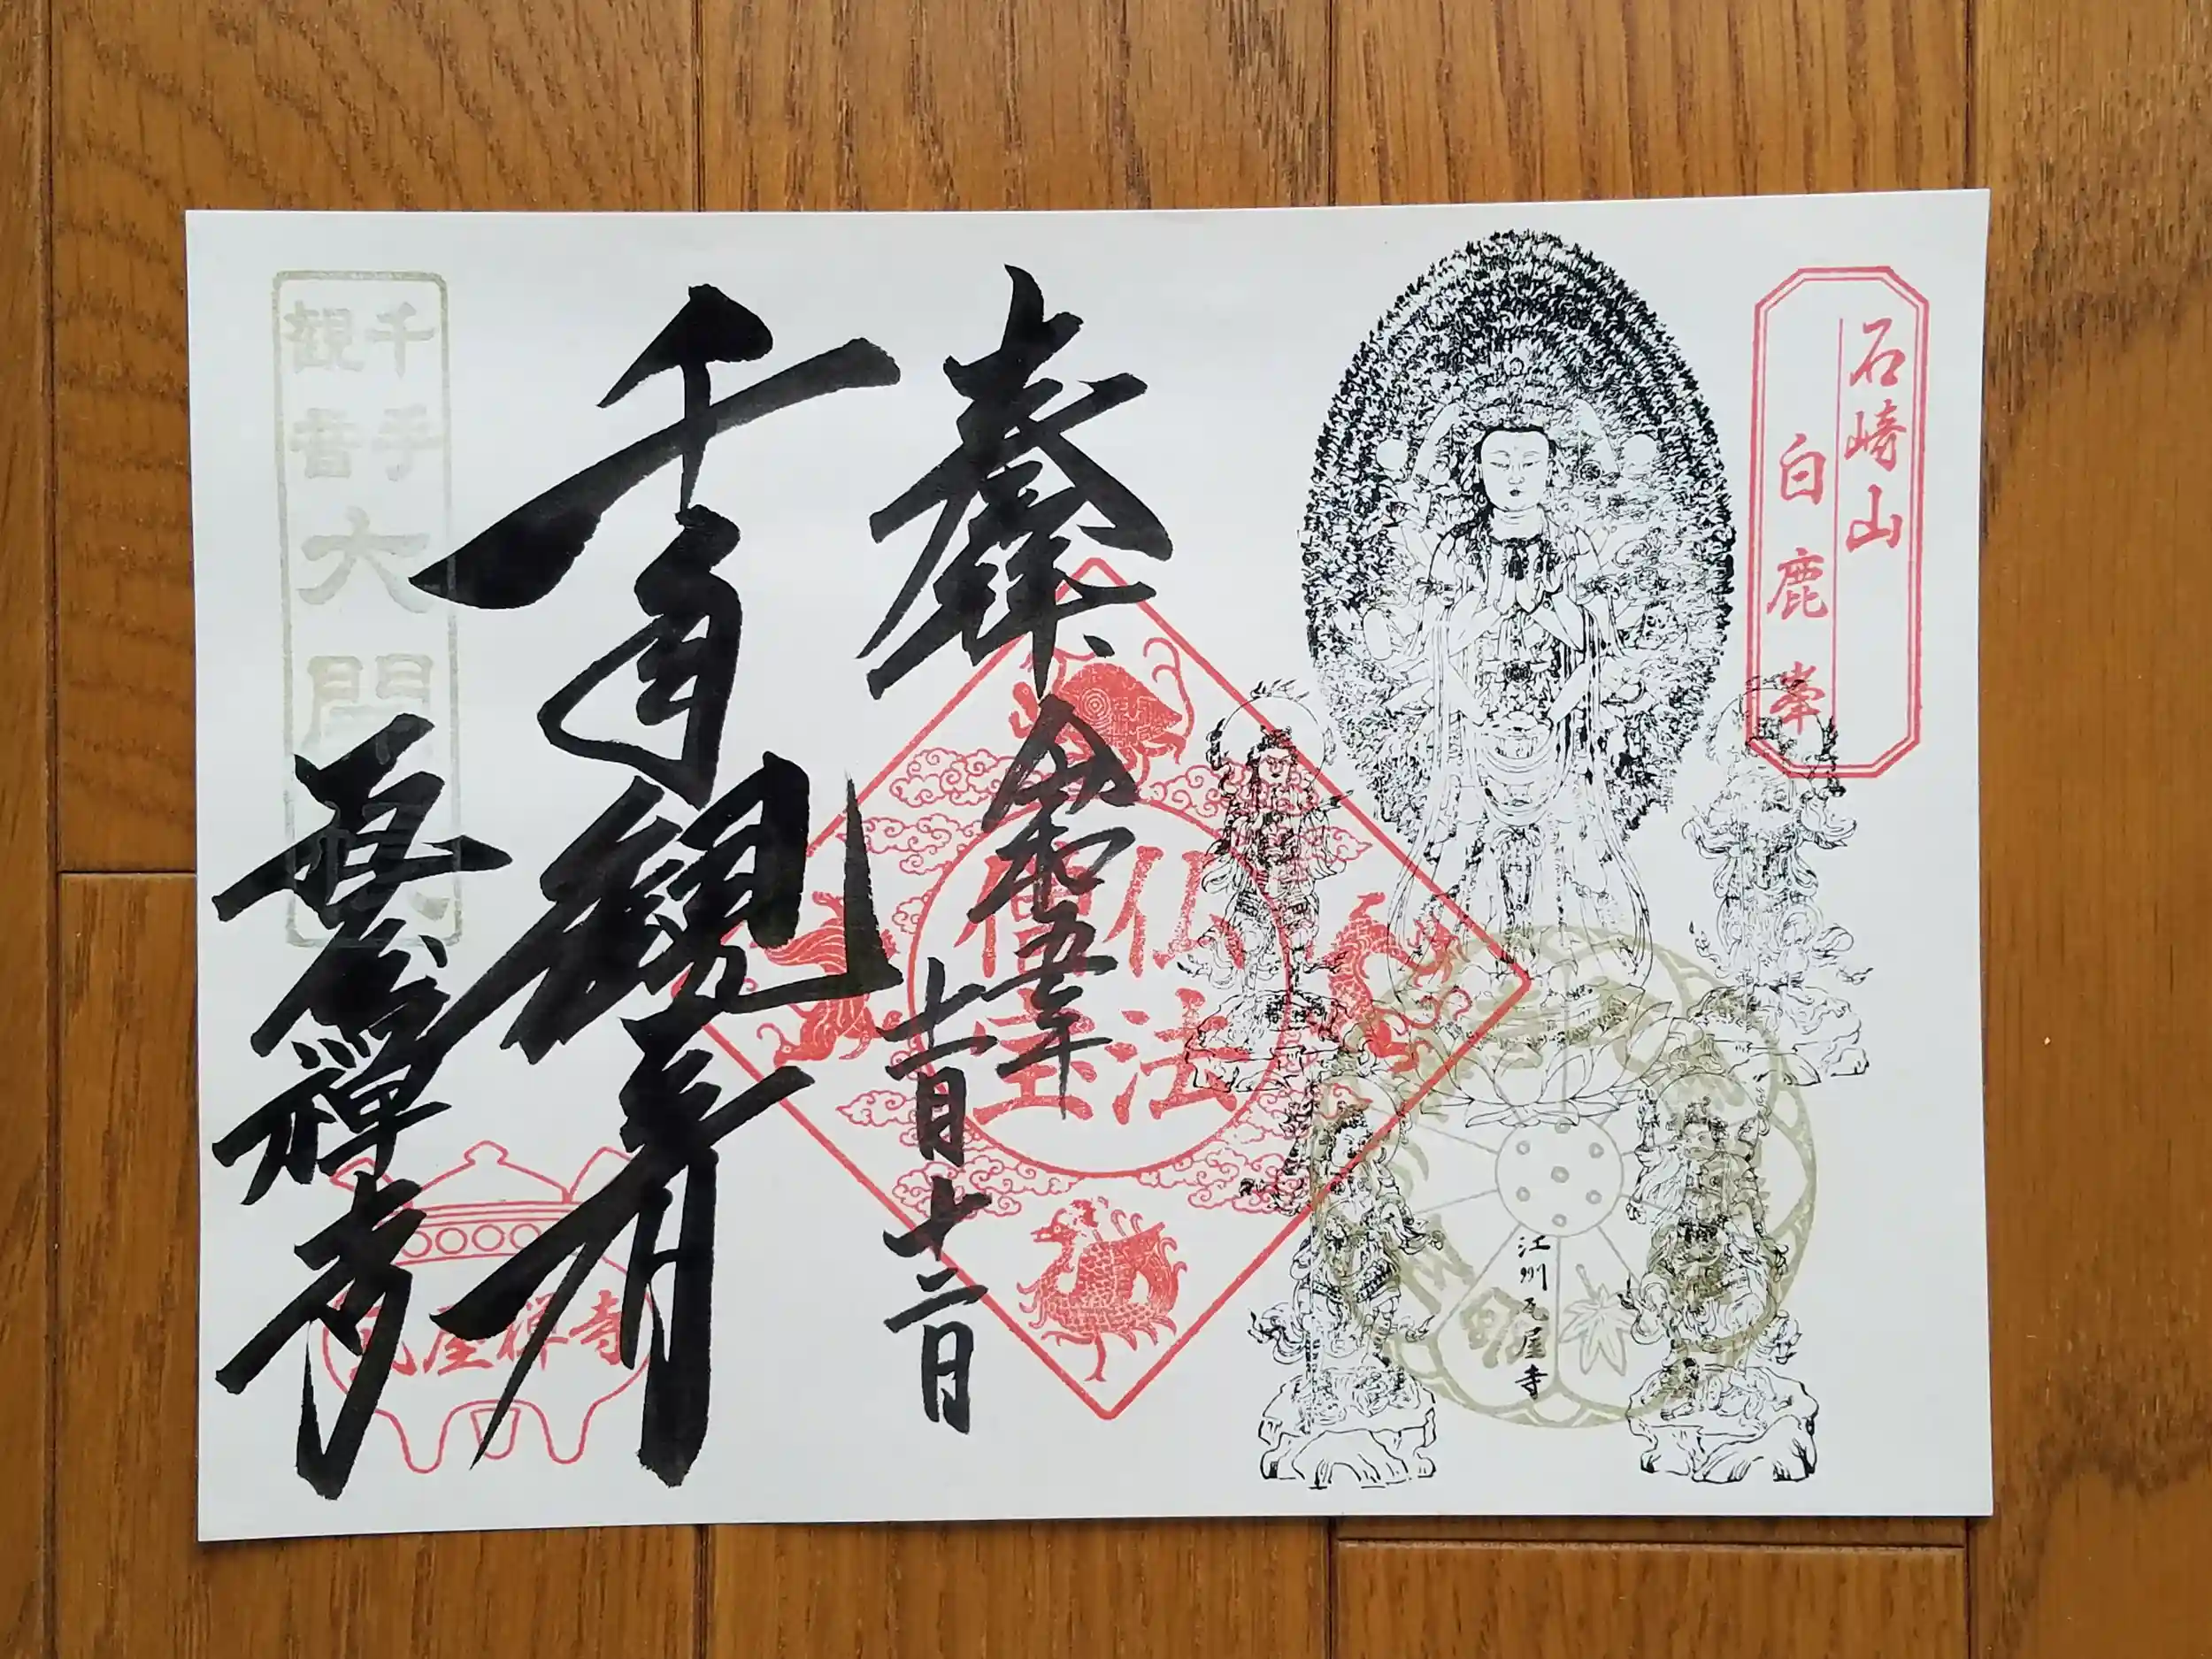 石崎山
白鹿峯
江州瓦屋寺
奉拝
令和五年
十一月十二日
仏法
僧宝
千手観音
瓦屋禪寺
千手
観音
大開帳
瓦屋禅寺